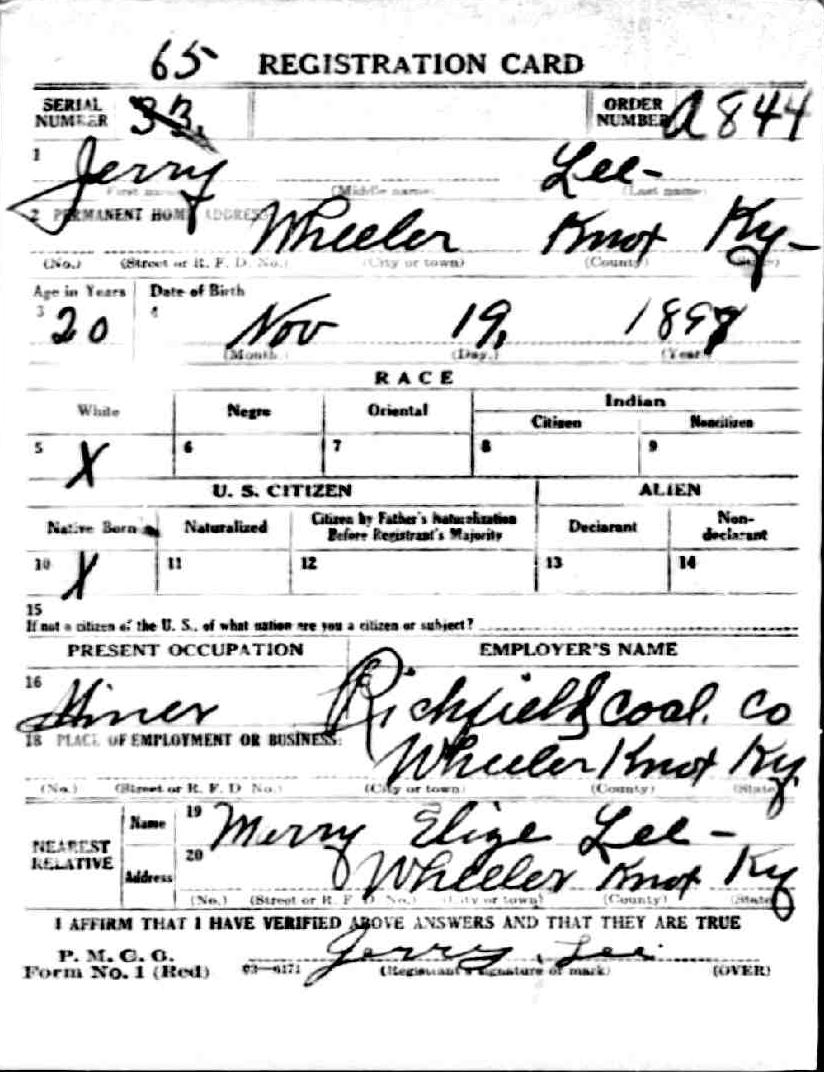 65 REGISTRATION CARD
SERIAL NUMBER 33. ORDER NUMBER A844
1 Jerry Lee-
(First name) (Middle name) (Last name)
2 PERMANENT HOME ADDRESS: Wheeler Knox Ky-
(No.) (Street or R. F. D. No.) (City or town) (County) (State)
Age in Years Date of Birth
3 20 4 Nov 19, 1897
(Month.) (Day.) (Year)
RACE
White Negro Oriental Indian
Citizen Noncitizen
5 X 6 7 8 9
U. S. CITIZEN ALIEN
Native Born Naturalized Citizen by Father's Naturalization Before Registrant's Majority Declarant Non-declarant
10 X 11 12 13 14
15
If not a citizen of the U. S., of what nation are you a citizen or subject?
PRESENT OCCUPATION EMPLOYER'S NAME
16 Miner Richfield Coal. Co
18 PLACE OF EMPLOYMENT OR BUSINESS: Wheeler Knox Ky
(No.) (Street or R. F. D No.) (City or town) (County) (State)
NEAREST RELATIVE Name 19 Merry Elize Lee-
Address 20 Wheeler Knox Ky
(No.) (Street or R. F. D. No.) (City or town) (County) (State)
I AFFIRM THAT I HAVE VERIFIED ABOVE ANSWERS AND THAT THEY ARE TRUE
P. M. G. O. Jerry. Lee
Form No. 1 (Red) 03—6171 (Registrant's signature of mark) (OVER)